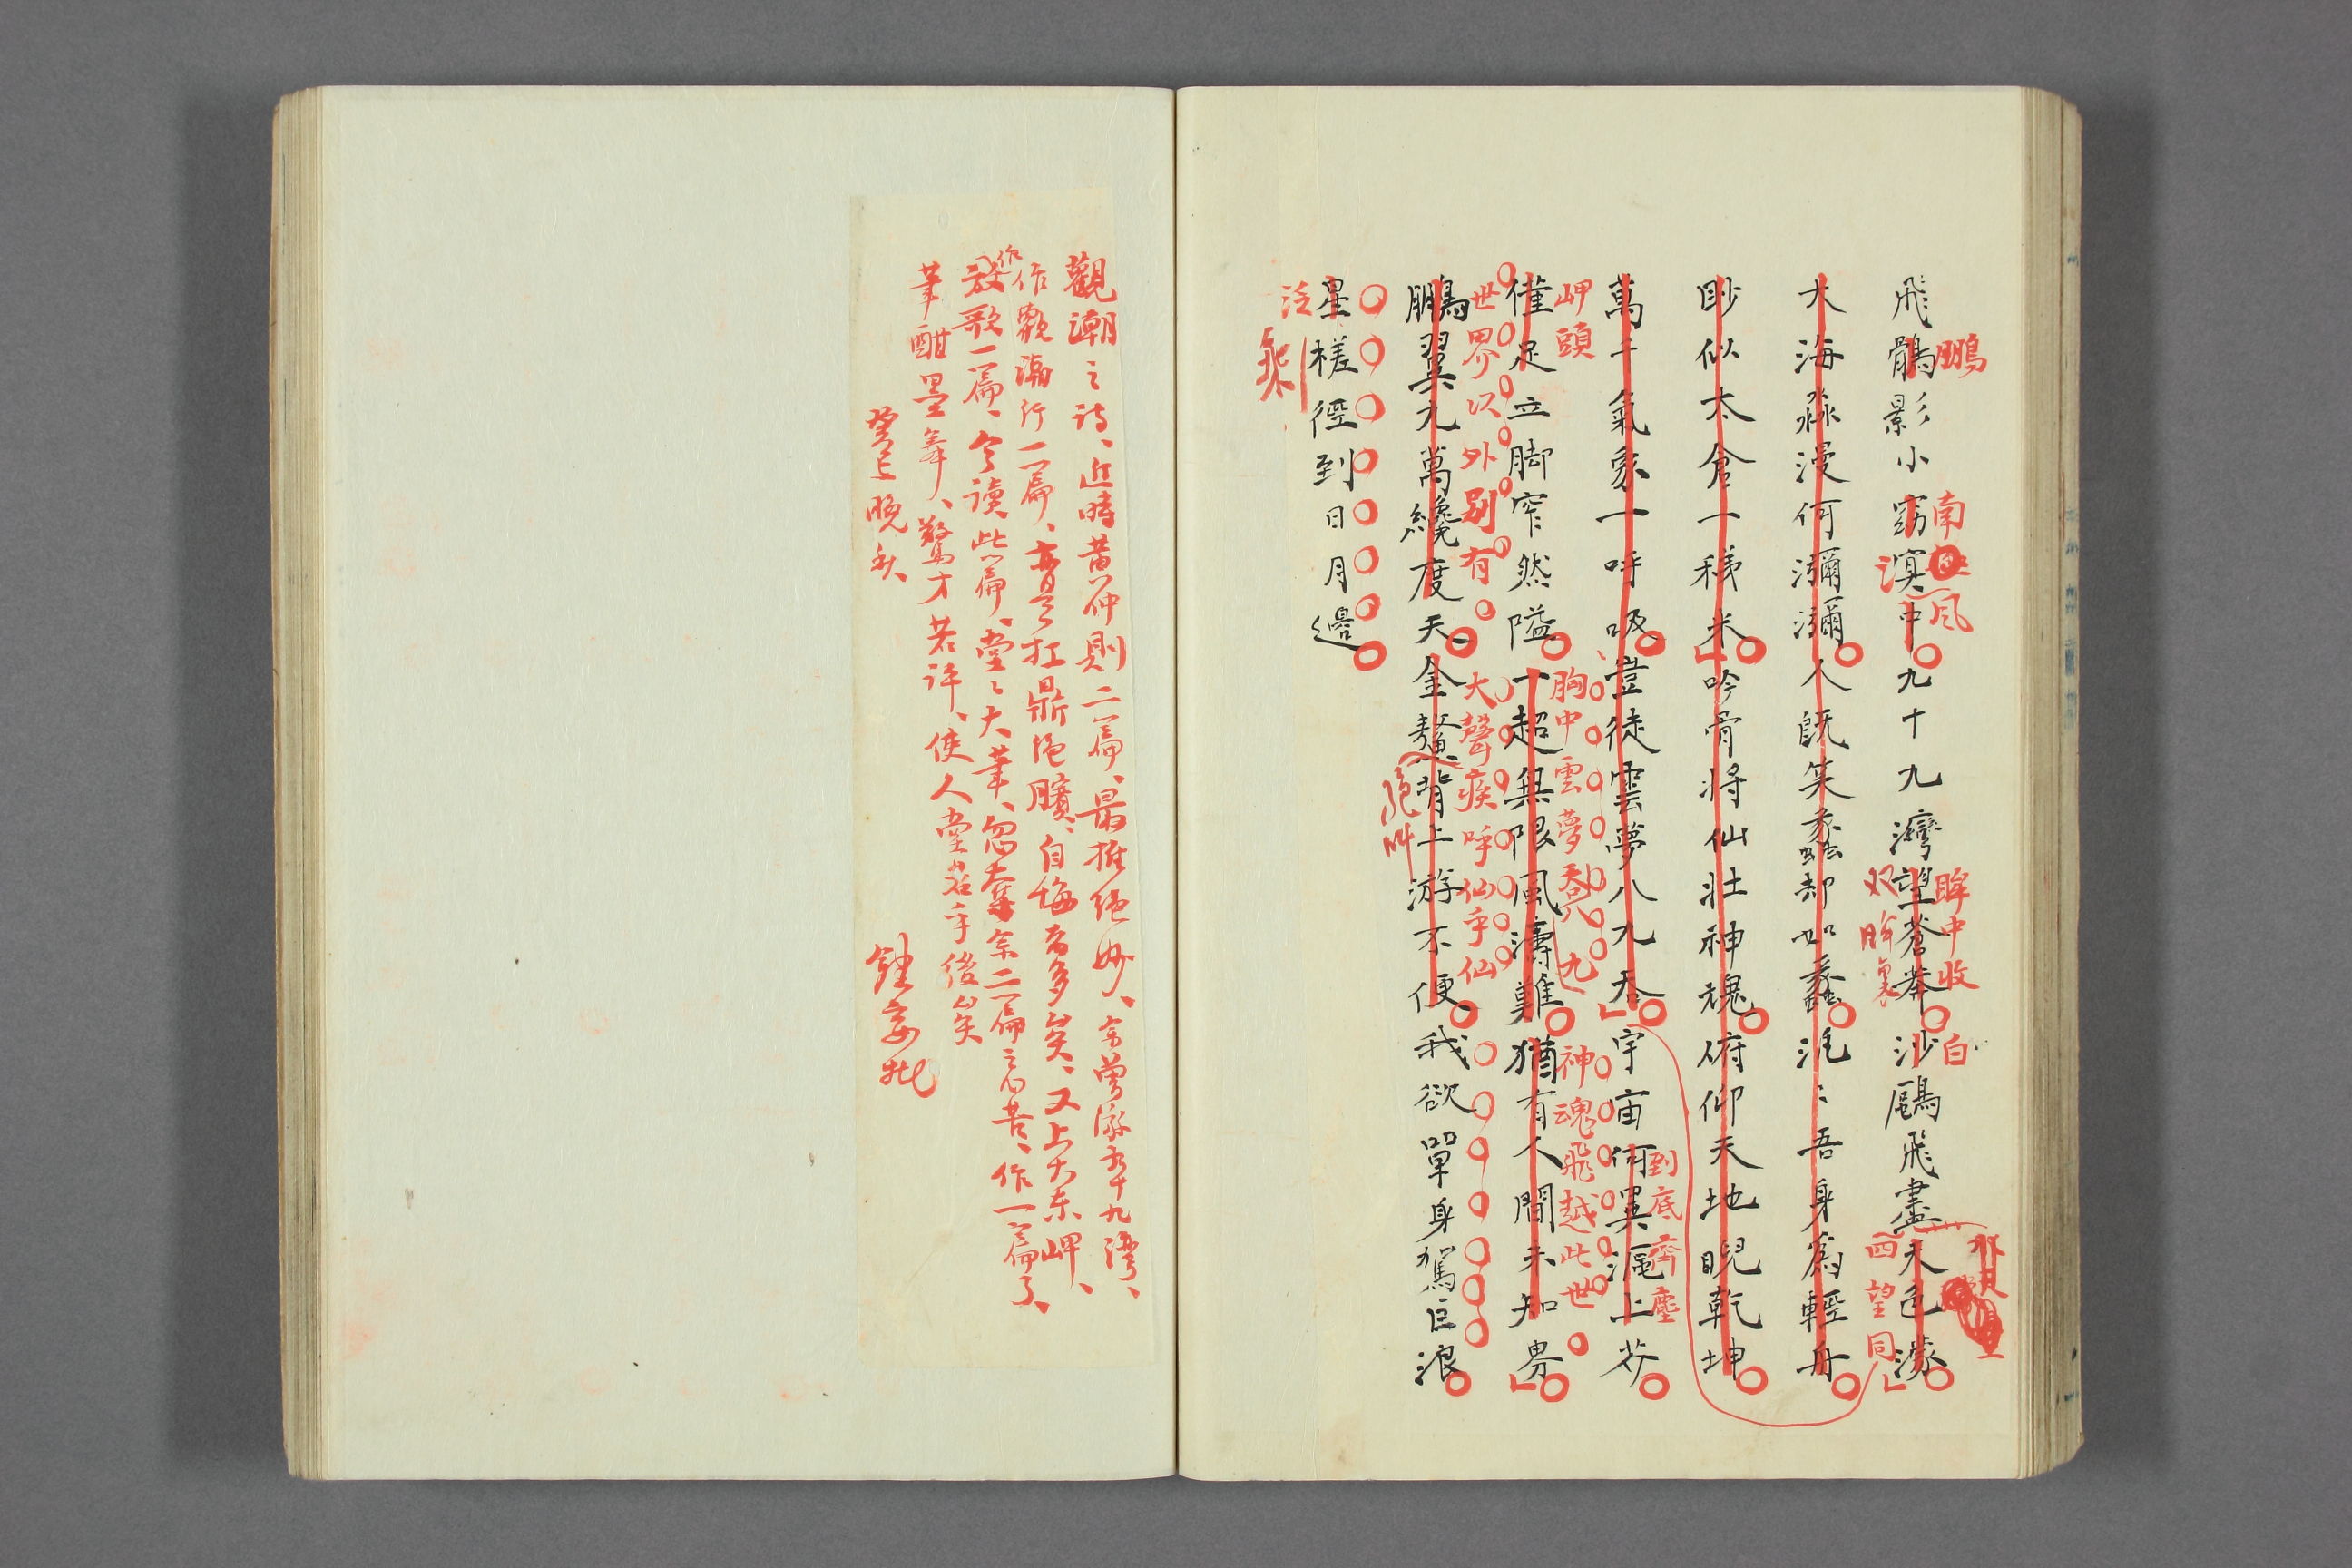 飛鶻影小窮溟中九十九灣望蒼莽沙鷗飛盡天色濛
鵬
南
風
溟
眸中收
双眸裏
白
四望同
大海淼漫何瀰瀰人旣笑蟊却如蠡泛〻吾身爲輕舟
眇似太倉一稊米吟骨將仙壯神魂俯仰天地睨乾坤
萬千氣象一呼吸豈徒雲夢八九吞宇宙何異漚上芥
到底齊塵
岬頭
胸中雲夢吞八九
神魂飛越此世
僅足立脚窄然隘一超無限風濤難猶有人間未知界
世界以外別有
大聲疾呼仙乎仙
鵬翼九萬纔度天金鼇背上游不便我欲單身駕巨浪
絕叫
星槎徑到日月邊
泛
乘
觀潮之詩、近時昔仲則二篇、最推絕妙、余曾游九十九灣、
作觀濤行一篇、亦是扛鼎絕臏、自悔者多矣、又上大東岬、
作
放歌一篇、今讀此篇、堂〻大筆、忽奪余二篇之心苦、作一篇了、
筆酣墨舞、驚才若許、使人瞠若乎後矣
癸巳晚秋、
妄批